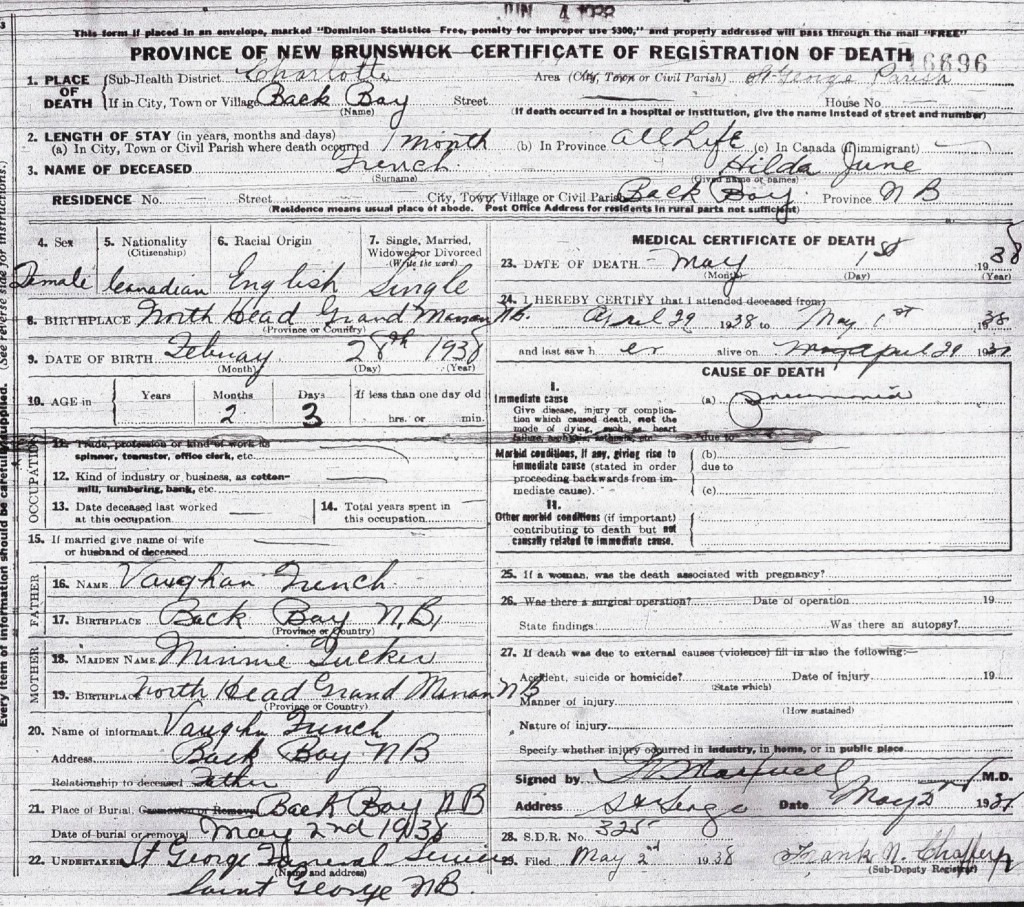 JUN 4 1938
This form if placed in an envelope, marked "Dominion Statistics—Free, penalty for improper use $300," and properly addressed will pass through the mail "FREE"
PROVINCE OF NEW BRUNSWICK—CERTIFICATE OF REGISTRATION OF DEATH
16696
1. PLACE OF DEATH (Sub-Health District Charlotte Area (City, Town or Civil Parish) St George Parish
If in City, Town or Village Back Bay Street House No
(Name) (If death occurred in a hospital or institution, give the name instead of street and number)
2. LENGTH OF STAY (in years, months and days)
(a) In City, Town or Civil Parish where death occurred 1 month (b) In Province all Life (c) In Canada (if immigrant)
3. NAME OF DECEASED French Hilda June
(Surname) (Given name or names)
RESIDENCE No. Street City, Town, Village or Civil Parish Back Bay Province N B
(Residence means usual place of abode. Post Office Address for residents in rural parts not sufficient)
4. Sex 5. Nationality (Citizenship) 6. Racial Origin 7. Single, Married, Widowed or Divorced (Write the word)
Female Canadian English Single
8. BIRTHPLACE North Head Grand Manan N.B.
(Province or Country)
9. DATE OF BIRTH Febuay 28th 1938
(Month) (Day) (Year)
10. AGE in Years Months Days If less than one day old
2 3 hrs. or min.
OCCUPATION
11. Trade, profession or kind of work as spinner, teamster, office clerk, etc.
12. Kind of industry or business, as cotton-mill, lumbering, bank, etc.
13. Date deceased last worked at this occupation
14. Total years spent in this occupation
15. If married give name of wife or husband of deceased
FATHER
16. NAME Vaughan French
17. BIRTHPLACE Back Bay N.B.
(Province or Country)
MOTHER
18. MAIDEN NAME Minnie Tucker
19. BIRTHPLACE North Head Grand Manan N B
(Province or Country)
20. Name of informant Vaughn French
Address Back Bay N B
Relationship to deceased Father
21. Place of Burial, Cremation or Removal Back Bay N B
Date of burial or removal May 2nd 1938
22. UNDERTAKER St George Funeral Service
(Name and address)
Saint George N.B.
MEDICAL CERTIFICATE OF DEATH
23. DATE OF DEATH May 1st 1938
(Month) (Day) (Year)
24. I HEREBY CERTIFY that I attended deceased from
April 29 1938 to May 1st 1938
and last saw h er alive on April 29 193
CAUSE OF DEATH
I.
Immediate cause (a) Pneumonia
Give disease, injury or complication which caused death, not the mode of dying, such as heart failure, asphyxia, asthenia, etc. due to
Morbid conditions, if any, giving rise to immediate cause (stated in order proceeding backwards from immediate cause). (b) due to (c)
II.
Other morbid conditions (if important) contributing to death but not causally related to immediate cause.
25. If a woman, was the death associated with pregnancy?
26. Was there a surgical operation? Date of operation 19
State findings Was there an autopsy?
27. If death was due to external causes (violence) fill in also the following:
Accident, suicide or homicide? Date of injury 19
(State which)
Manner of injury
(How sustained)
Nature of injury
Specify whether injury occurred in industry, in home, or in public place
Signed by Maxwell M.D.
Address St George Date May 2nd 193
28. S.D.R. No. 325
29. Filed May 2nd 1938 Frank N. Chaffey
(Sub-Deputy Registrar)
Every item of information should be carefully supplied. (See reverse side for instructions.)